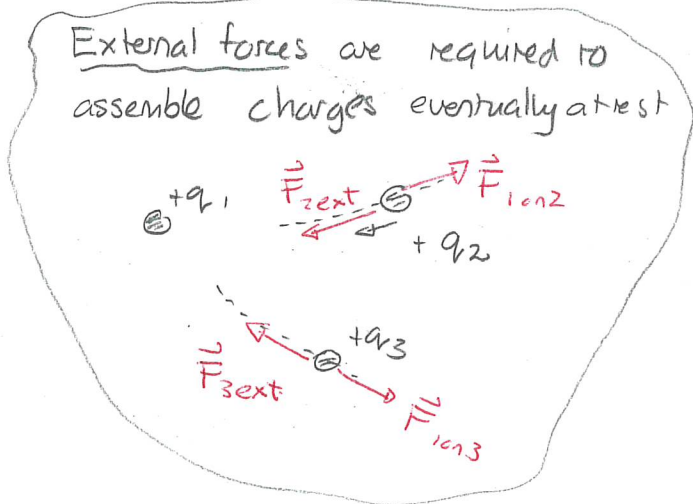 External forces are required to
assemble charges eventually at rest
+q1
F⃗2ext
F⃗1on2
+q2
+q3
F⃗3ext
F⃗1on3